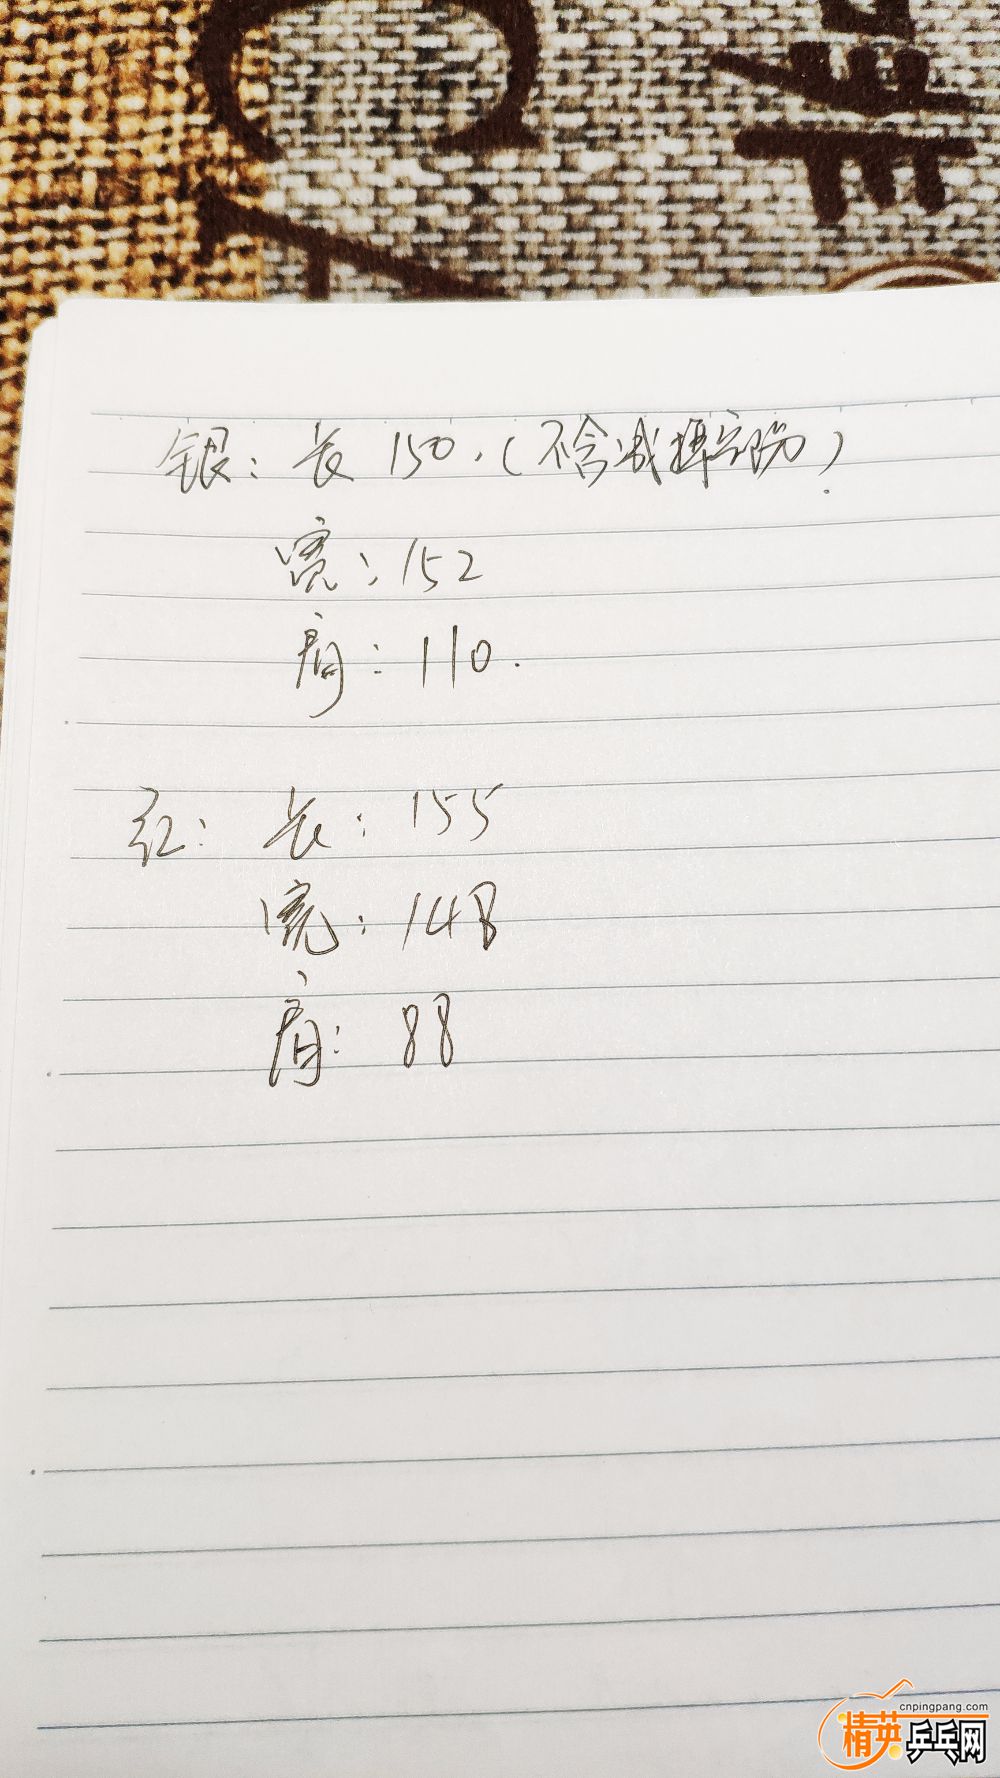 银：长150.（不含减掉部份）
宽：152
肩：110.
红：长：155
宽：148
肩：88
cnpingpang.com
精英乒乓网